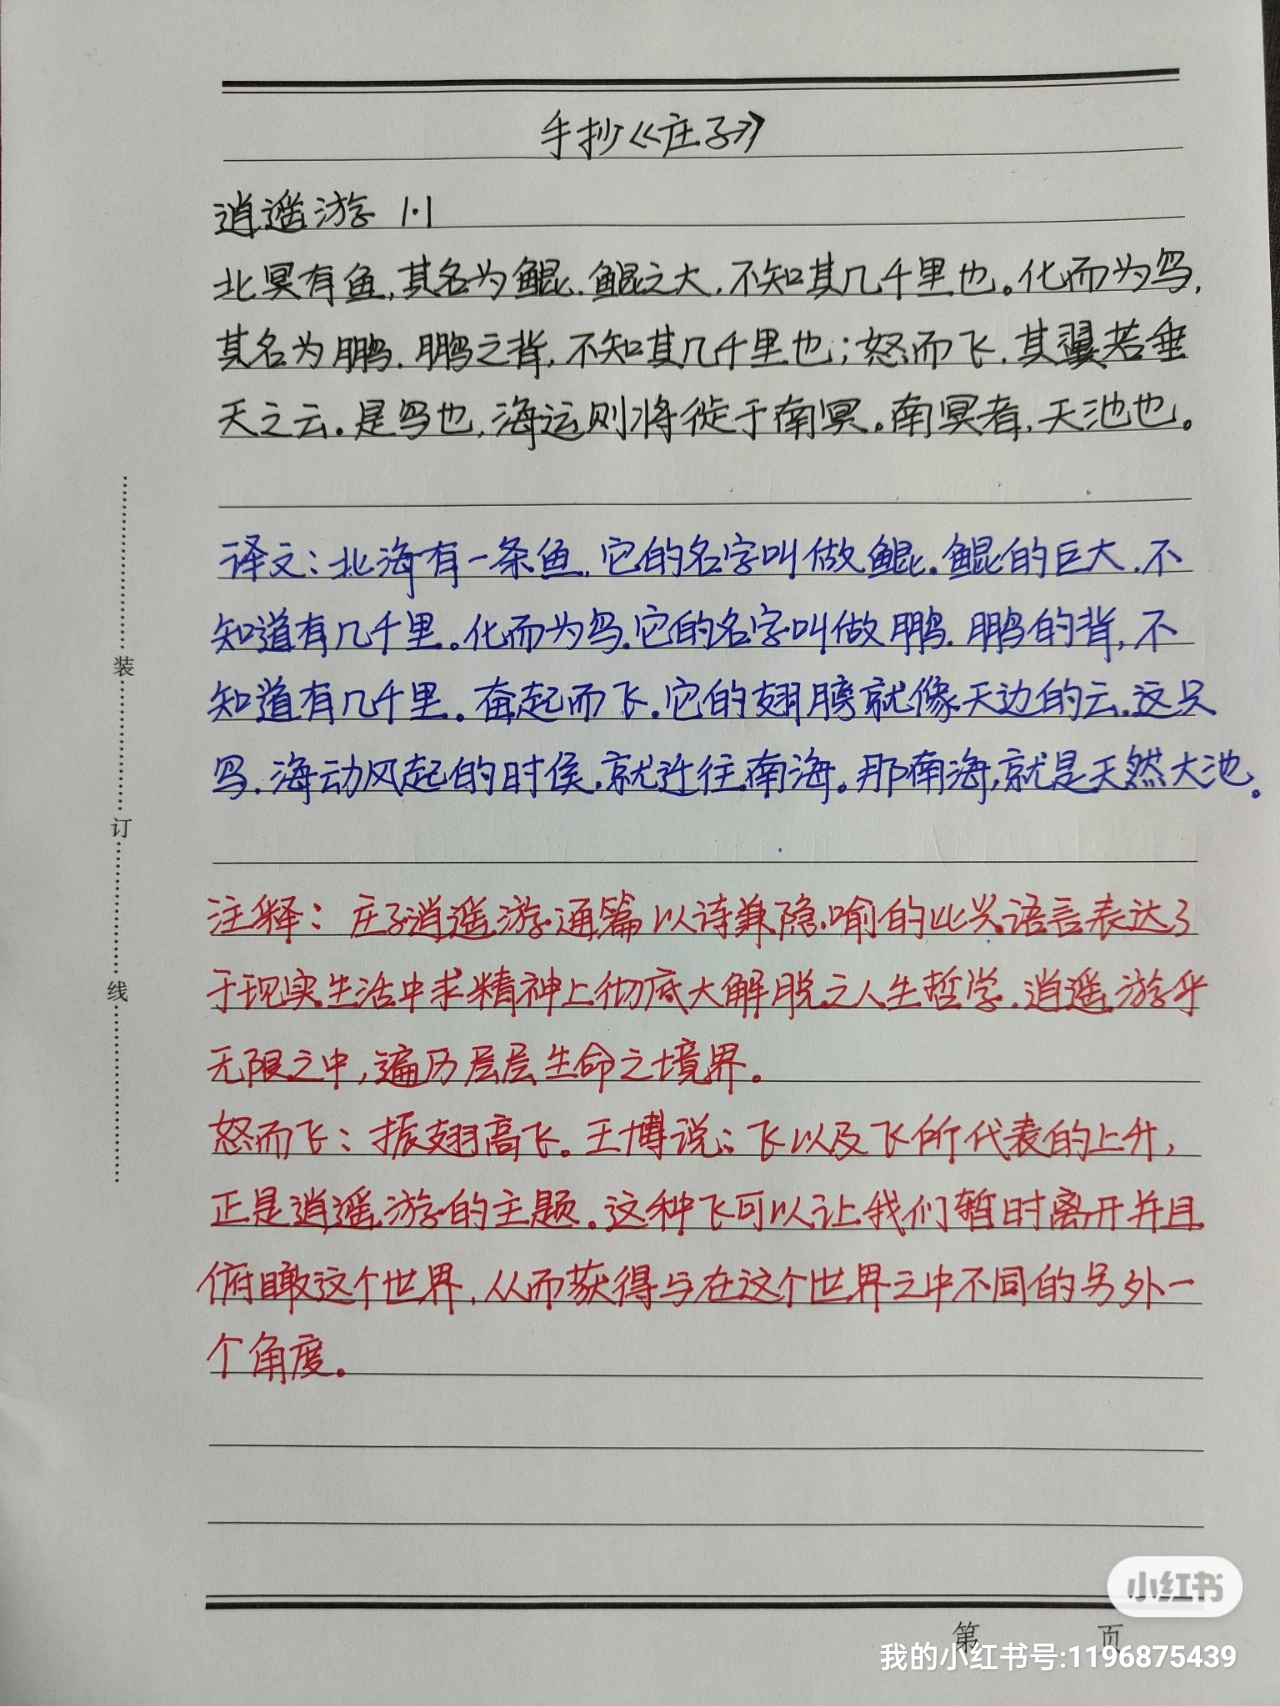 手抄《庄子》
逍遥游 1·1
北冥有鱼,其名为鲲.鲲之大,不知其几千里也。化而为鸟,
其名为鹏.鹏之背,不知其几千里也;怒而飞,其翼若垂
天之云。是鸟也,海运则将徙于南冥。南冥者,天池也。
译文:北海有一条鱼,它的名字叫做鲲。鲲的巨大,不
知道有几千里。化而为鸟,它的名字叫做鹏.鹏的背,不
知道有几千里。奋起而飞,它的翅膀就像天边的云.这只
鸟,海动风起的时侯,就迁往南海。那南海,就是天然大池。
注释:庄子逍遥游通篇以诗兼隐喻的比兴语言表达了
于现实生活中求精神上彻底大解脱之人生哲学.逍遥游乎
无限之中,遍历层层生命之境界。
怒而飞:振翅高飞。王博说:飞以及飞所代表的上升,
正是逍遥游的主题。这种飞可以让我们暂时离开并且
俯瞰这个世界,从而获得与在这个世界之中不同的另外一
个角度。
装
订
线
小红书
第 页
我的小红书号:1196875439